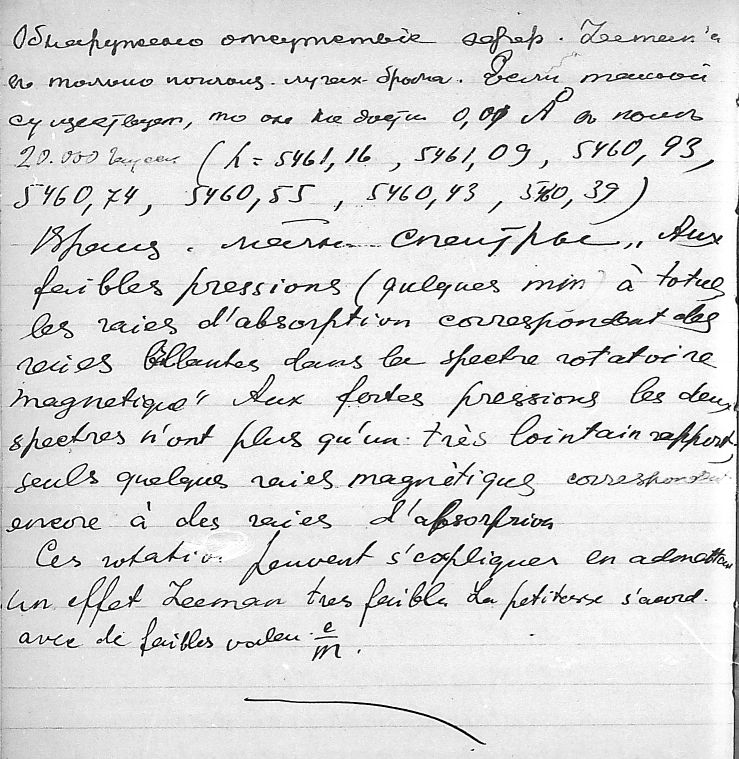 Обнаружено отсутствие эффер. Zeeman'а
в тонких поглощ. лучах брома. Если таковой
существует, то он не дости 0,01 Å в поле
20.000 гаусс (λ = 5461,16, 5461,09, 5460,93,
5460,74, 5460,55, 5460,43, 5460,39)
Вращ. магн. спектры „Aux
faibles pressions (quelques min) à totues
les raies d'absorption correspondent des
raies brillantes dans le spectre rotatoire
magnetique" Aux fortes pressions les deux
spectres n'ont plus qu'un très lointain rapport,
seuls quelques raies magnètiques correspondent
encore à des raies d'absorption
Ces rotatio. peuvent s'expliquer en admettan
un effet Zeeman tres faible. La petitesse s'acord.
avec de faibles valeu. e/m.